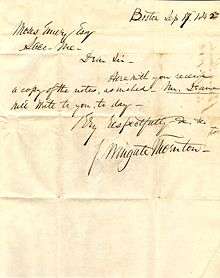 Boston Sep 19. 1842
Moses Emery Esq
Saco - Me. -
Dear Sir -
Herewith you receive
a copy of the notes, as wished - Mr. Deane
will write to you to day -
Very respectfully &c. &c
J. Wingate Thornton -